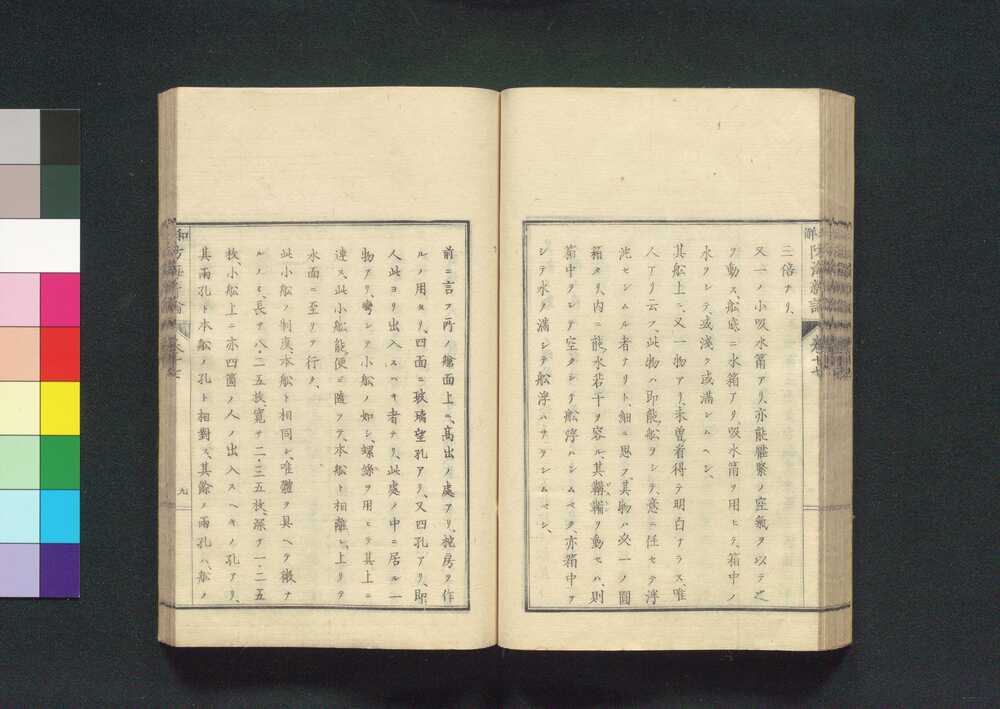 三倍ナリ、
又一ノ小吸水筩アリ、亦能緊ノ空氣ヲ以テ之
ヲ動ス、舩底ニ水箱アリ吸水筩ヲ用ヒテ、箱中ノ
水ヲシテ、或淺ク或滿シムヘシ、
其舩上ニ、又一物アリ、未曽看得テ明白ナラス、唯
人アリ云フ、此物ハ即能舩ヲシテ、意ニ任セテ浮
沈セシムル者ナリト、細ニ思フ、其物ハ必一ノ圓
箱タリ、内ニ能水若干ヲ容ル、其鞲鞴ヲ動セハ、則
箱中ヲシテ空クシ、舩浮ハシムヘク、亦箱中ヲ
シテ水ヲ滿シテ舩浮ハサラシムヘシ、
前ニ言フ所ノ艙面上ニ、高出ノ處アリ、柁房ヲ作
ルノ用タリ、四面ニ玻璃望孔アリ、又四孔アリ、即
人此ヨリ出入スヘキ者ナリ、此處ノ中ニ居ル一
物アリ、彎シテ小舩ノ如シ、螺絲ヲ用ヒテ其上ニ
連ス、此小舩能便ニ隨フテ、本舩ト相離レ、上リテ
水面ニ至リテ行ク、
此小舩ノ制度本舩ト相同シ、唯體ヲ具ヘテ微ナ
ルノミ、長サ八・二五枚、寛サ二・三五枚、深サ一・二五
枚、小舩上ニ亦四箇ノ人ノ出入スヘキノ孔アリ、
其兩孔ト本舩ノ孔ト相對ス、其餘ノ兩孔ハ、舩ノ
九